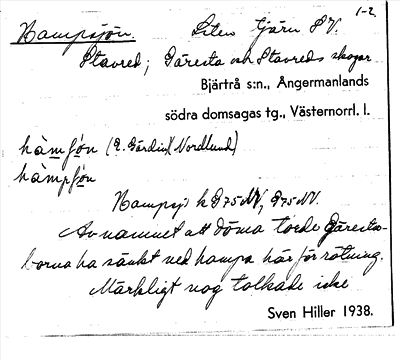 1-2.
Hampsjön. Liten tjärn S V.
Stavred; Gäresta och Stavreds skogar
Bjärtrå s:n., Ångermanlands
södra domsagas tg., Västernorrl. l.
hàmʃö̀n (E. Gördin, Nordlund)
hàmpʃö̀n
Hampsj: k D75NV, D75NV.
Av namnet att döma torde Gäresta-
borna ha sänkt ned hampa här för rötning.
Märkligt nog tolkade icke
Sven Hiller 1938.